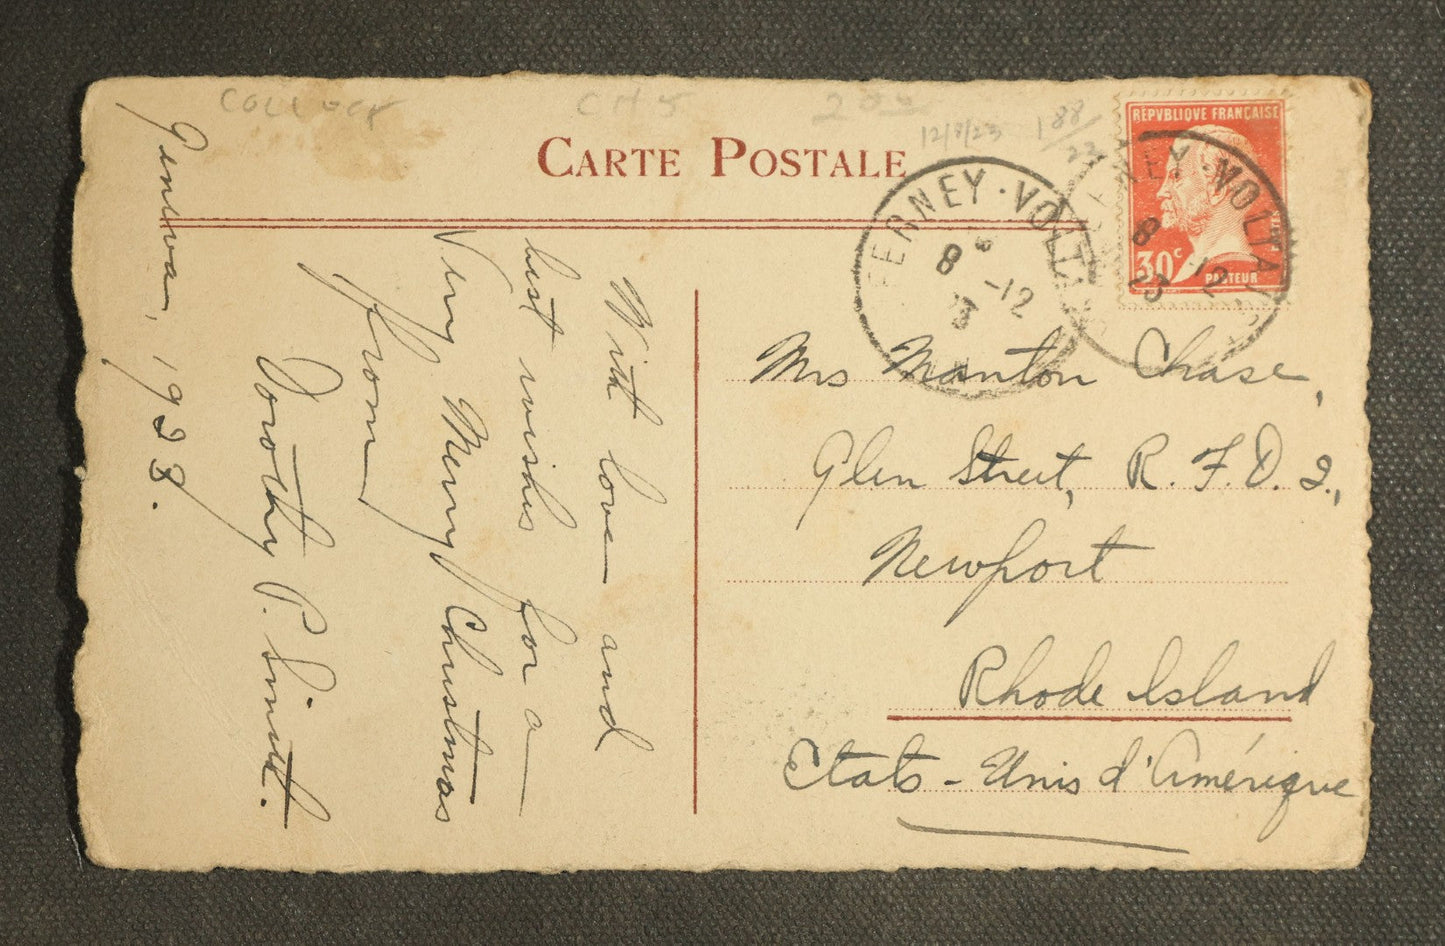 COLLOCK CH5 200
12/8/23 188/23
CARTE POSTALE
RÉPUBLIQUE FRANÇAISE
30c
PASTEUR
FERNEY·VOLTA
8
-12
23
FERNEY·VOLTA
8
-12
23
Geneva, 1923.
With love and
best wishes for a
Very Merry Christmas
from
Dorothy P. Smith.
Mrs Manton Chase,
Glen Street, R. F. D. 2.,
Newport
Rhode Island
Etats-Unis d'Amérique